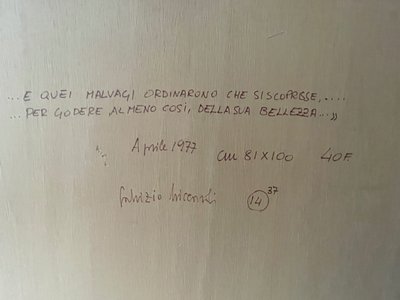 ...E QUEI MALVAGI ORDINARONO CHE SI SCOPRISSE,....
...PER GODERE ALMENO COSÌ, DELLA SUA BELLEZZA...»
Aprile 1977 cm 81X100 40F
Fabrizio 14 37